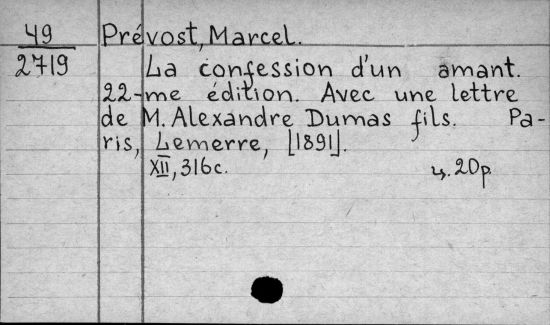 49 Prévost, Marcel.
2719 La confession d'un amant.
22-me édition. Avec une lettre
de M. Alexandre Dumas fils. Pa-
ris, Lemerre, [1891].
XII, 316c. ц. 20р.